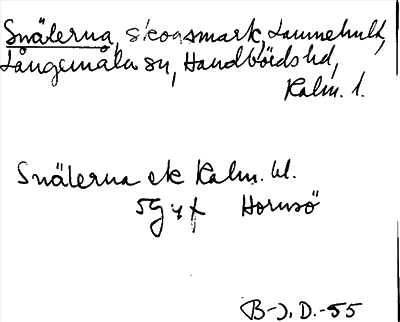 Snälerna, skogsmark, Launehult,
Långemåla sn, Handbörds hd,
Kalm. l.
Snälerna ek Kalm. bl.
5G4f Hornsö
B-J. D.-55